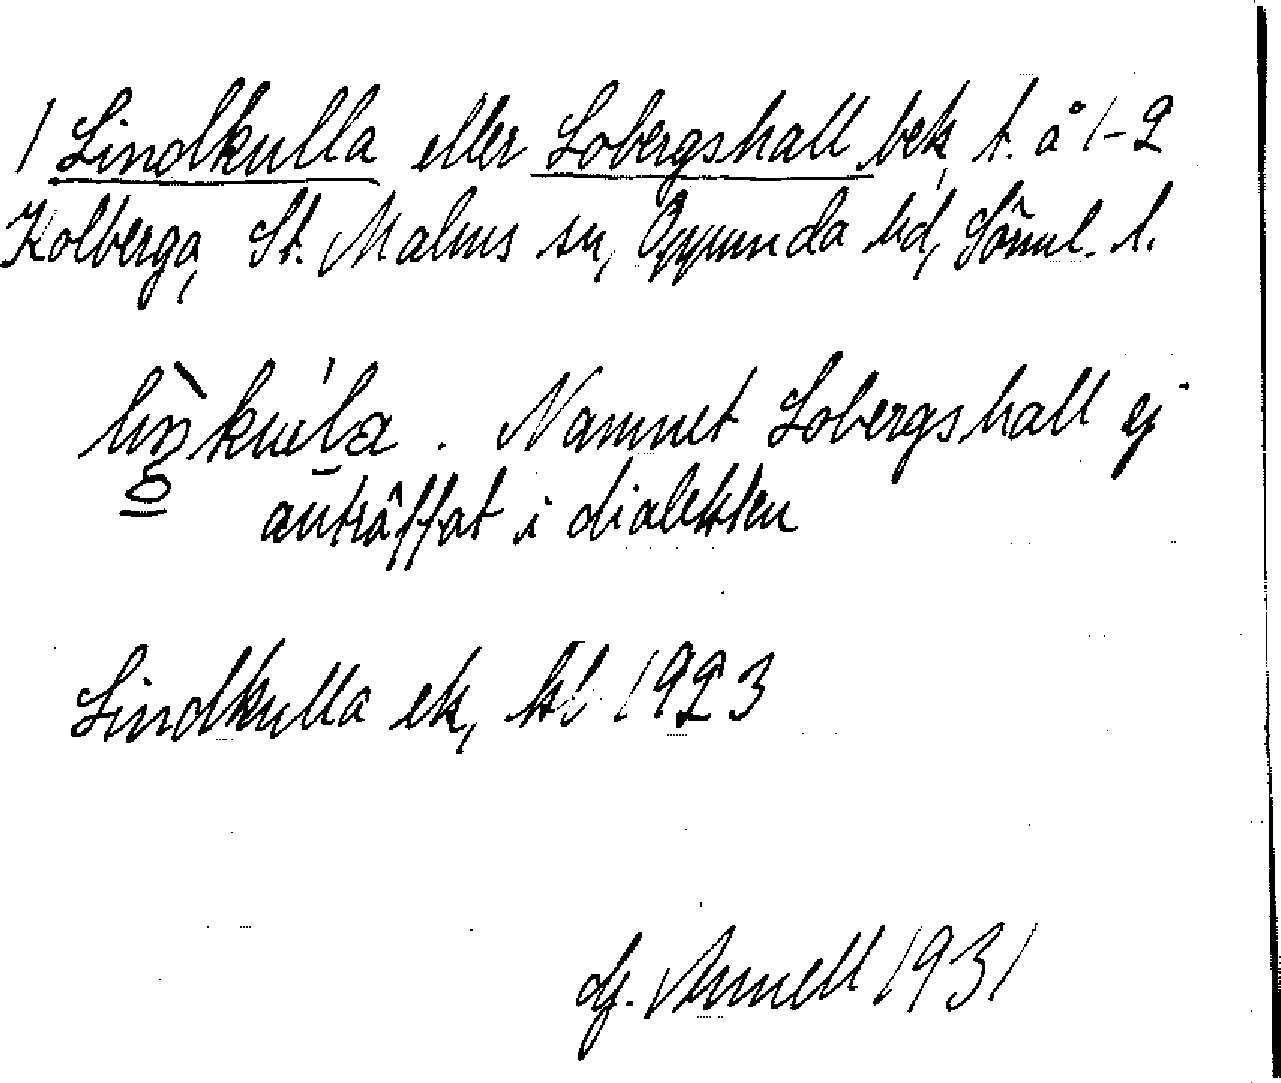 1 Lindkulla eller Lobergshall, bek, t. å 1-2
Kolberga, St. Malms sn, Oppunda hd, Söml. l.
Namnet Lobergshall ej
anträffat i dialekten
Lindkulla ek, 1923
1931